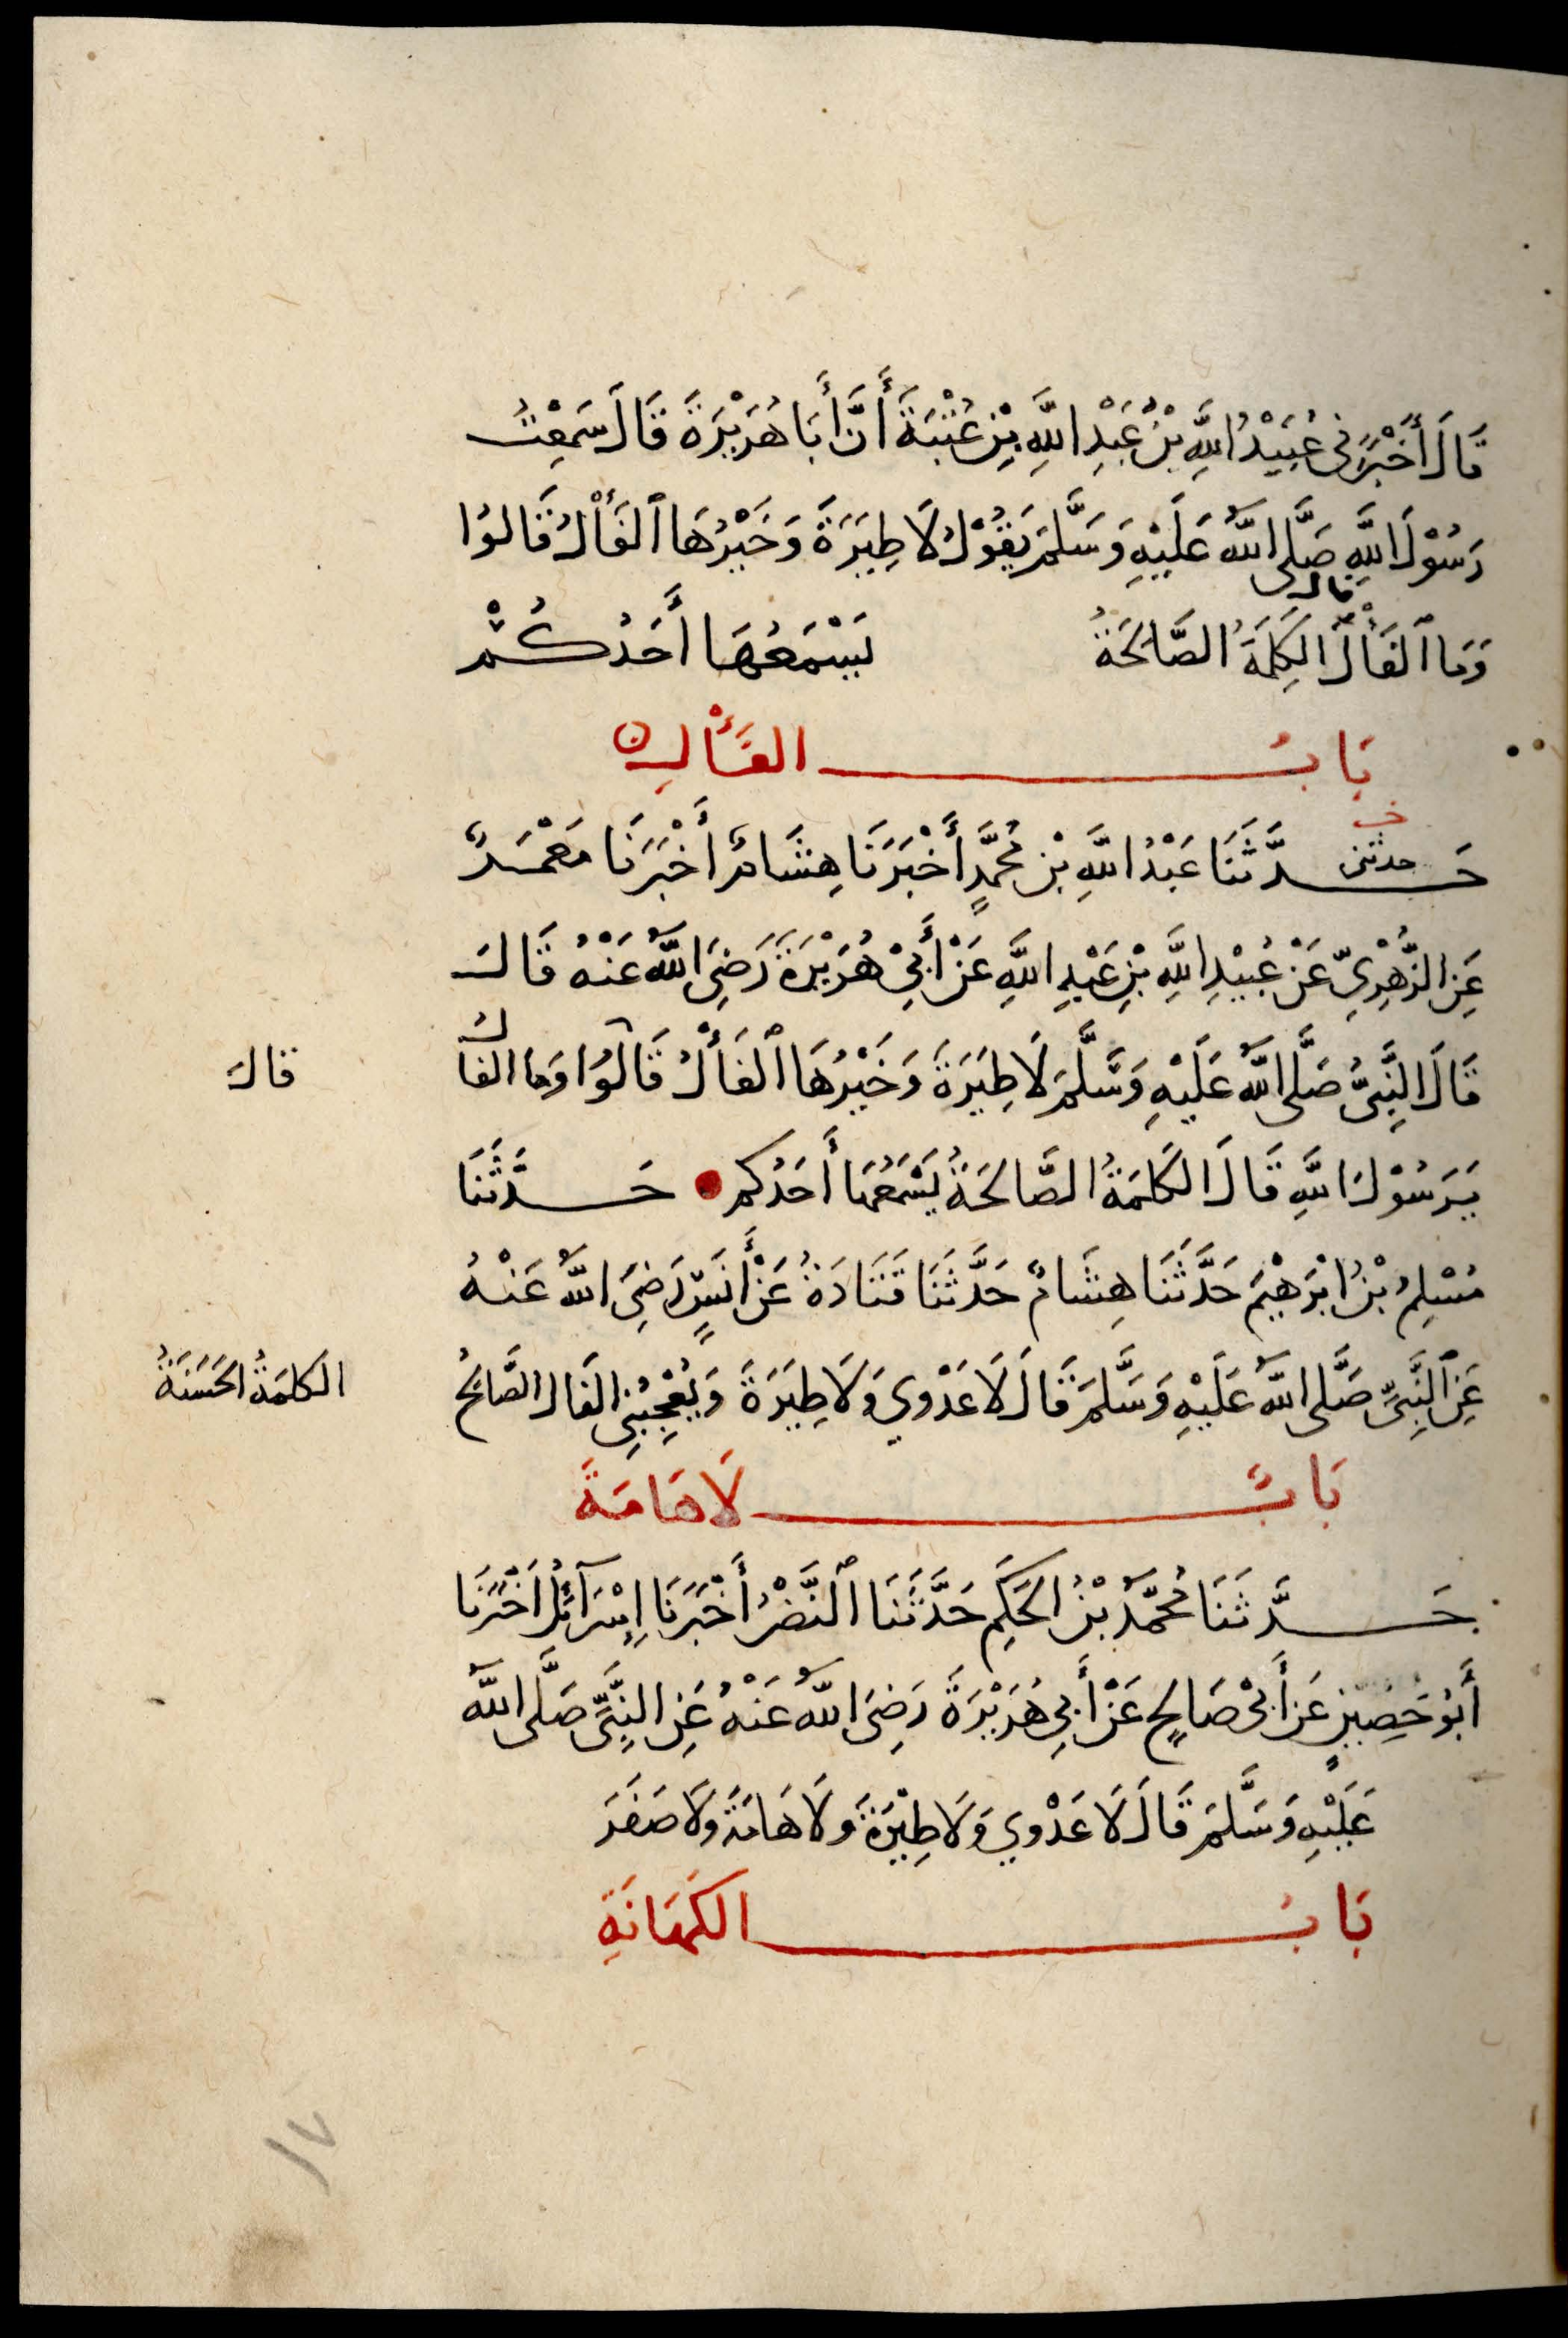 قَالَ أَخْبَرَنِي عُبَيْدُ اللَّهِ بْنُ عَبْدِ اللَّهِ بْنِ عُتْبَةَ أَنَّ أَبَا هُرَيْرَةَ قَالَ سَمِعْتُ
رَسُوْلَ اللَّهِ صَلَّى اللَّهُ عَلَيْهِ وَسَلَّمَ يَقُوْلُ لَا طِيَرَةَ وَخَيْرُهَا ٱلْفَأْلُ قَالُوْا
قال
وَمَا ٱلْفَأْلُ الْكَلِمَةُ الصَّالِحَةُ يَسْمَعُهَا أَحَدُكُمْ
بَابُ الفَأْلِ
خـ
حدثني
حَدَّثَنَا عَبْدُ اللَّهِ بْنِ مُحَمَّدٍ أَخْبَرَنَا هِشَامٌ أَخْبَرَنَا مَعْمَرٌ
عَنِ الزُّهْرِيِّ عَنْ عُبَيْدِ اللَّهِ بْنِ عَبْدِ اللَّهِ عَنْ أَبِيْ هُرَيْرَةَ رَضِيَ اللَّهُ عَنْهُ قَالَ
قَالَ النَّبِيُّ صَلَّى اللَّهُ عَلَيْهِ وَسَلَّمَ لَا طِيَرَةَ وَخَيْرُهَا ٱلْفَأْلُ قَالُوْا وَمَا الفالُ
قالَ
يَرَسُوْلَ اللَّهِ قَالَ الكَلِمَةُ الصَّالِحَةُ يَسْمَعُهَا أَحَدُكم حَدَّثَنَا
مُسْلِمُ بْنُ ابْرَهِيْمَ حَدَّثَنَا هِشَامٌ حَدَّثَنَا قَتَادَةُ عَنْ أَنَسٍ رَضِيَ اللَّهُ عَنْهُ
عَنِ ٱلنَّبِيِّ صَلَّى اللَّهُ عَلَيْهِ وَسَلَّمَ قَالَ لَا عَدْوي وَلَا طِيَرَةَ وَيُعْجِبُنِي الفَال الصَّالِحُ
الكلمَةُ الحَسَنَةُ
بَابٌ لَا هَامَةَ
حَدَّثَنَا مُحَمَّدُ بْنُ الحَكَمِ حَدَّثَنَا ٱلنَّضْرُ أَخْبَرَنَا إِسْرَآئِلُ اَخْبَرَنَا
أَبُوْ حَصِيْنٍ عَن أَبِيْ صَالِحٍ عَنْ أَبِي هُرَيْرَةَ رَضِيَ اللَّهُ عَنْهُ عَنِ النَّبِيِّ صَلَّى اللَّهُ
عَلَيْهِ وَسَلَّمَ قَالَ لَا عَدْوي وَلَا طِيْرَةَ وَلَا هَامَةَ وَلَا صَفَرَ
بَابُ الكَهَانَةِ
١٧